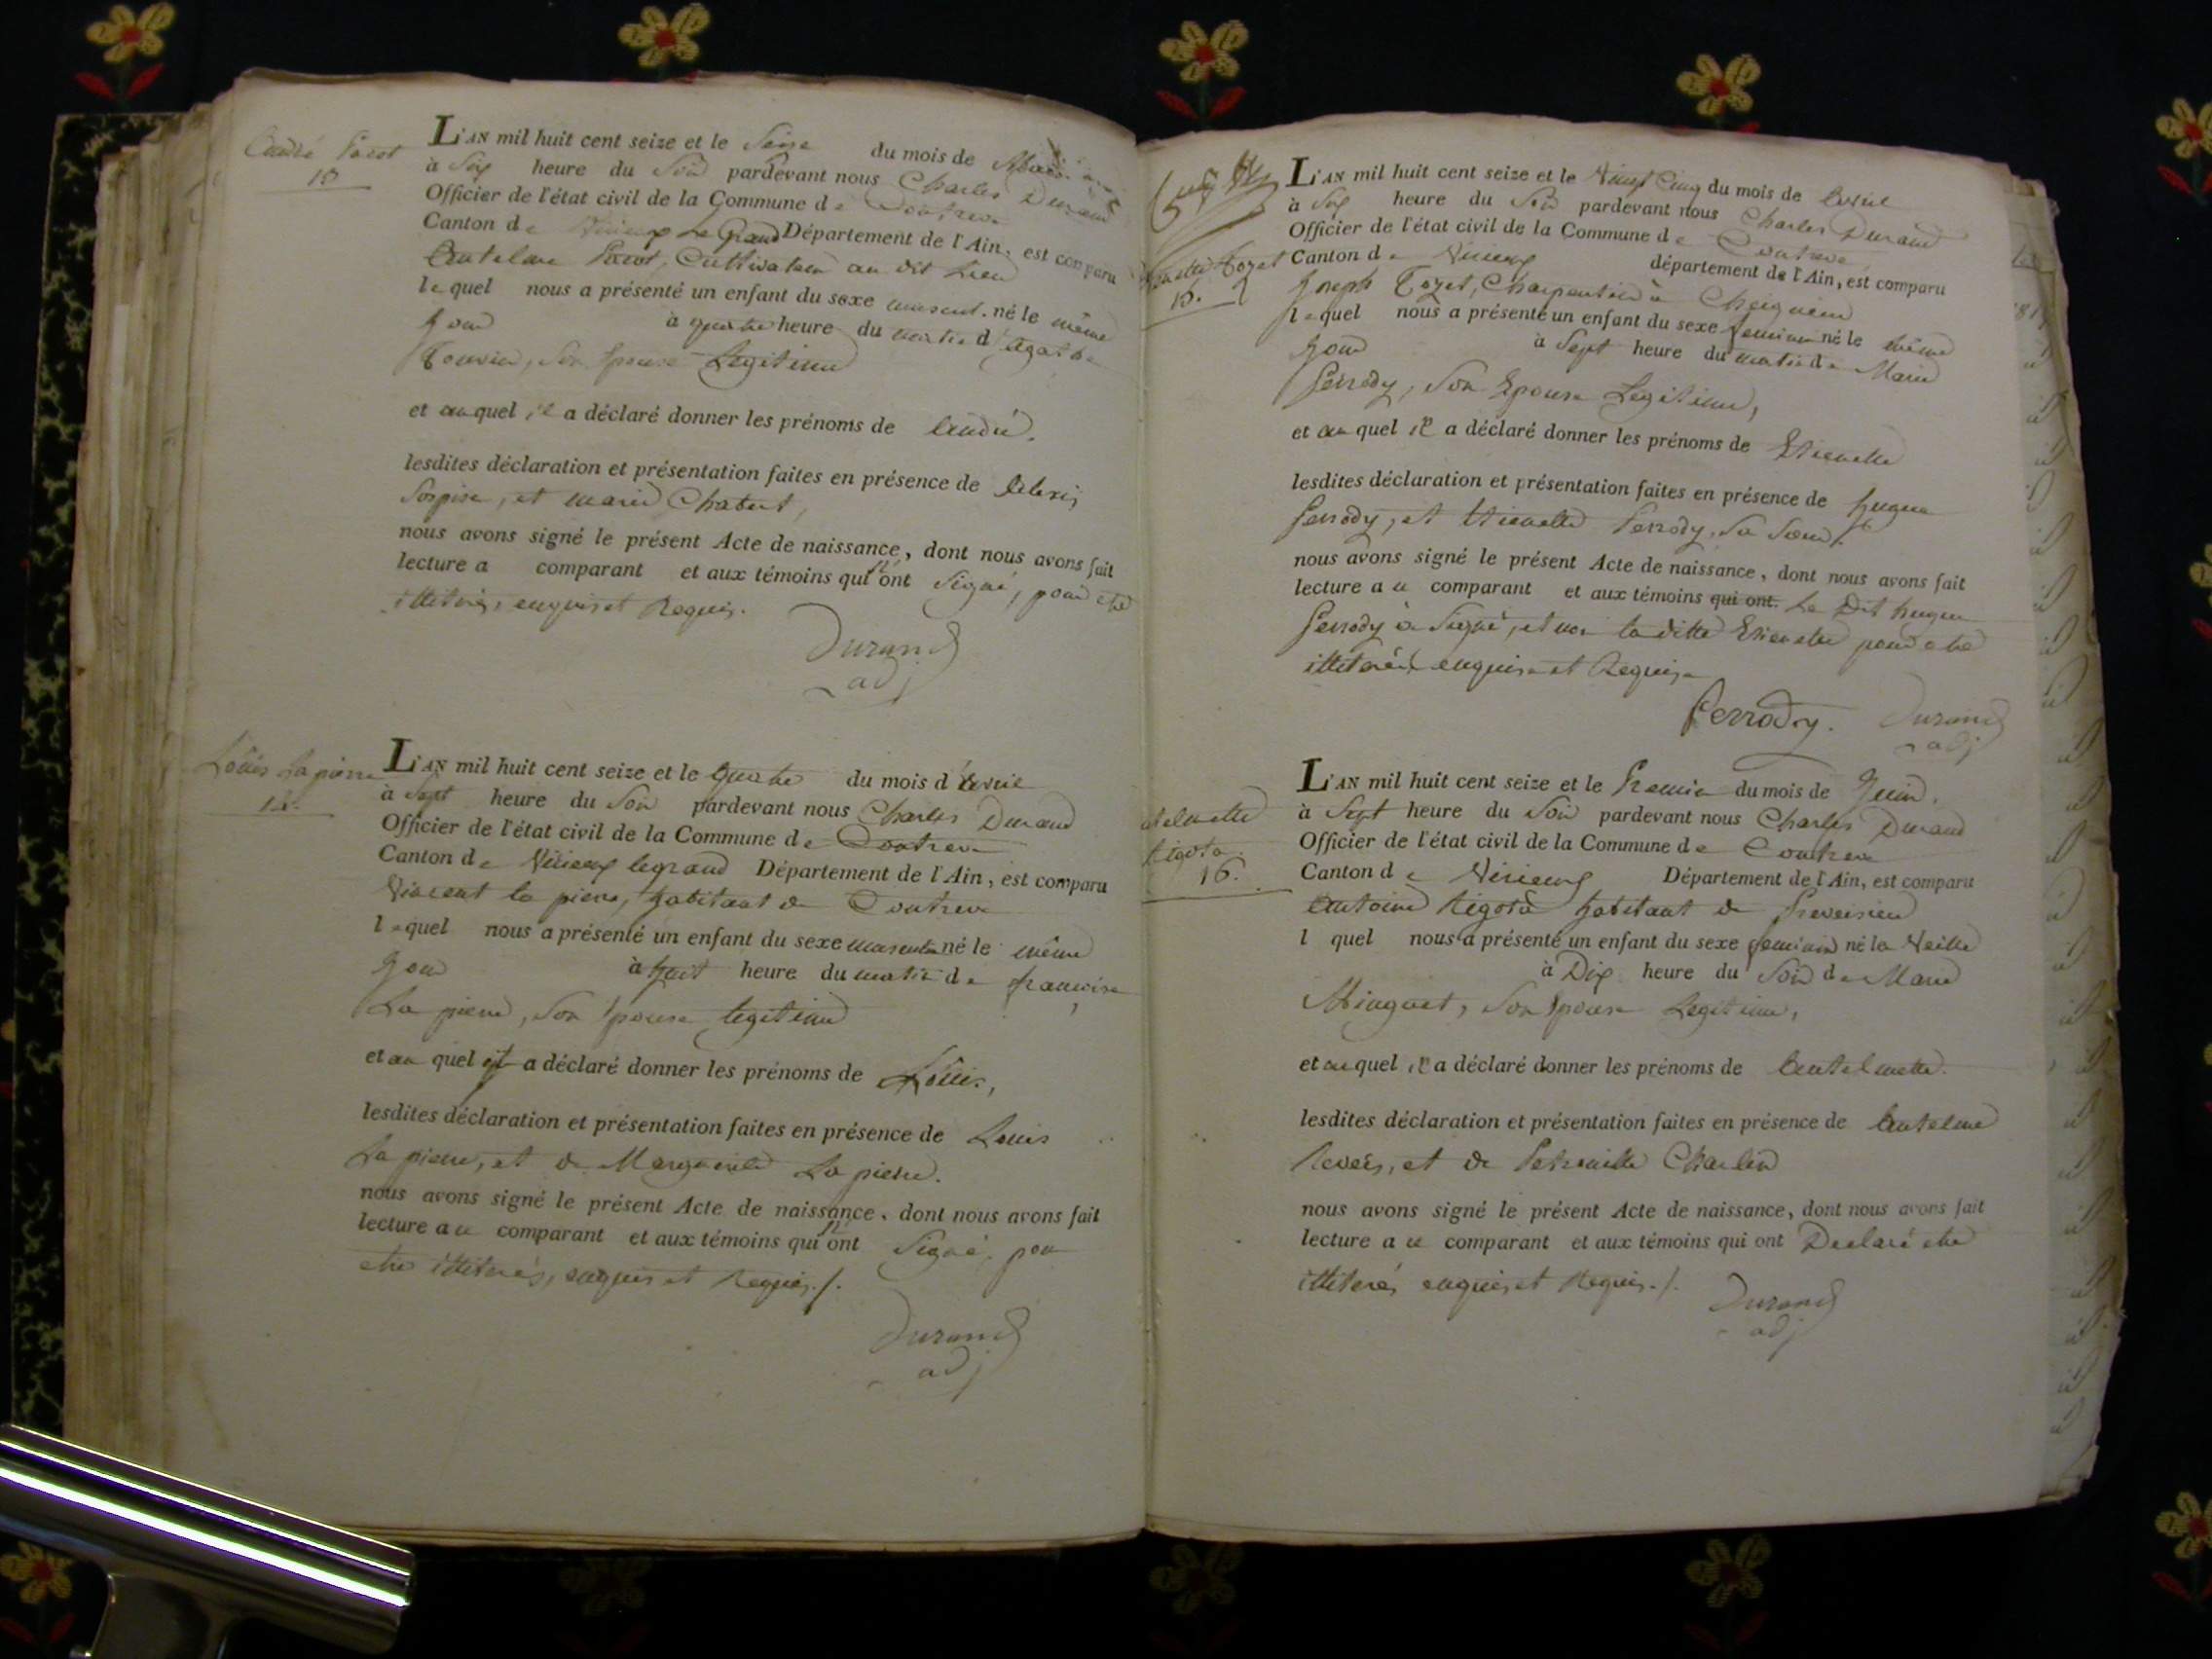 André Parot
13
L'AN mil huit cent seize et le Seize du mois de Mars
à Six heure du Soir pardevant nous Charles Durand
Officier de l'état civil de la Commune de Contrevoz
Canton de Virieux Le Grand Département de l'Ain, est comparu
Antelme Parot, Cultivateur au dit Lieu
lequel nous a présenté un enfant du sexe mascul. né le même
Jour à quatre heure du matin d'Agathe
son Epouse Legitime
et auquel il a déclaré donner les prénoms de André.
lesdites déclaration et présentation faites en présence de Alexis
et marie Chabert,
nous avons signé le présent Acte de naissance, dont nous avons fait
lecture a comparant et aux témoins qui n'ont Signé, pour etre
illiterés, enquis et Requis.
Durand
adj
Loüis La pierre
14.
L'AN mil huit cent seize et le quatre du mois d'avril
à Sept heure du Soir pardevant nous Charles Durand
Officier de l'état civil de la Commune de Contrevoz
Canton de Virieux legrand Département de l'Ain, est comparu
Vincent la pierre, habitant de Contrevoz
lequel nous a présenté un enfant du sexe masculin né le même
Jour à huit heure du matin de francoise
La pierre, son Epouse legitime
et au quel il a déclaré donner les prénoms de Loüis,
lesdites déclaration et présentation faites en présence de Louis
La pierre, et de Marguerite La pierre.
nous avons signé le présent Acte de naissance, dont nous avons fait
lecture au comparant et aux témoins qui n'ont Signé, pour
etre illiterés, enquis et Requis./.
Durand
adj
Tozet
15.
L'AN mil huit cent seize et le Vingt Cinq du mois de avril
à Six heure du Soir pardevant nous Charles Durand
Officier de l'état civil de la Commune de Contrevoz
Canton de Virieux département de l'Ain, est comparu
Joseph Tozet, Charpentier à Cheignieu
lequel nous a présenté un enfant du sexe feminin né le même
Jour à Sept heure du matin de Marie
Perrody, Son Epouse Legitime,
et au quel il a déclaré donner les prénoms de Etienette
lesdites déclaration et présentation faites en présence de hugue
Perrody, et Etienette Perrody, Sa Sœur.
nous avons signé le présent Acte de naissance, dont nous avons fait
lecture au comparant et aux témoins qui ont. Le Dit hugue
Perrody à Signé, et non la ditte Etienette pour etre
illiterée enquise et Requise
Perrody. Durand
adj
16.
L'AN mil huit cent seize et le Premier du mois de Juin.
à Sept heure du Soir pardevant nous Charles Durand
Officier de l'état civil de la Commune de Contrevoz
Canton de Virieux Département de l'Ain, est comparu
Antoine habitant de Preveisieu
l quel nous a présenté un enfant du sexe feminin né la Veille
à Dix heure du Soir de Marie
Minguet, Son Epouse Legitime,
et auquel il a déclaré donner les prénoms de Antelmette.
lesdites déclaration et présentation faites en présence de Antelme
et de Petronille Charlin
nous avons signé le présent Acte de naissance, dont nous avons fait
lecture au comparant et aux témoins qui ont Declaré etre
illiterés enquis et Requis./.
Durand
adj